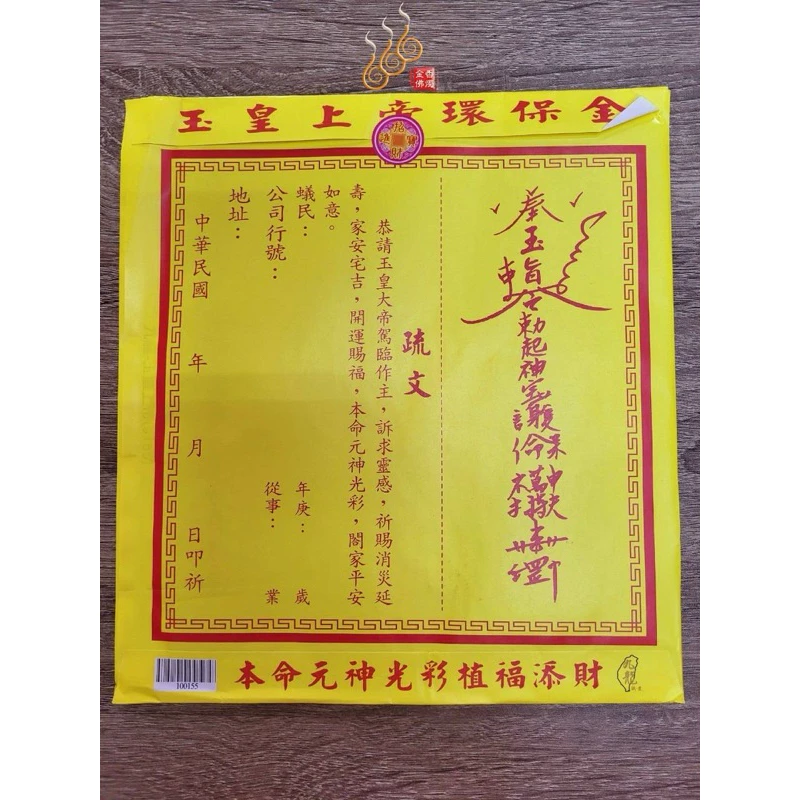 玉皇上帝環保金
奉玉旨
疏文
恭請玉皇大帝駕臨作主，訴求靈感，祈賜消災延
壽，家安宅吉，開運賜福，本命元神光彩，閤家平安
如意。
蟻民： 年庚： 歲
公司行號： 從事： 業
地址：
中華民國 年 月 日叩祈
100155
本命元神光彩植福添財